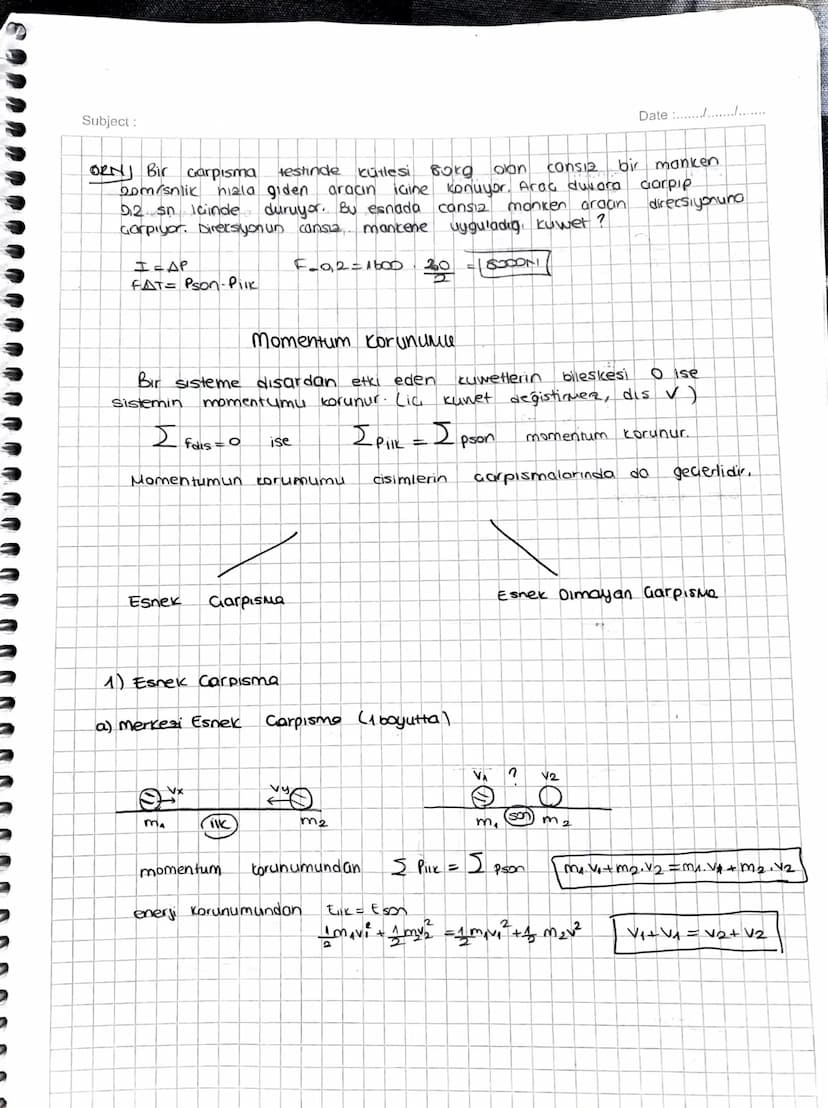 Subject :
Date :......./......./.......
ÖRN) Bir çarpışma testinde kütlesi 80kg olan cansız bir manken
20m/snlik hızla giden aracın içine konuyor. Araç duvara çarpıp
0,2 sn içinde duruyor. Bu esnada cansız manken aracın direcsiyonuna
çarpıyor. Direcsiyonun cansız mankene uyguladığı kuvvet ?
I = ΔP
F_0,2 = 1600
= 8000N
FΔT = Pson - Pilk
Momentum Korunumu
Bir sisteme dışardan etki eden kuvvetlerin bileşkesi 0 ise
sistemin momentumu korunur. (iç kuvvet değiştirmez, dış √ )
Σ fdış = 0 ise Σ Pilk = Σ pson momentum korunur.
Momentumun korunumu cisimlerin çarpışmalarında da geçerlidir.
Esnek Çarpışma
Esnek Olmayan Çarpışma
1) Esnek Çarpışma
a) Merkezi Esnek Çarpışma (1 boyutta)
Vx Vy V1 ? V2
m1 ilk m2 m1 son m2
momentum korunumundan Σ Pilk = Σ pson m1.V1+m2.V2=m1.V1+m2.V2
enerji korunumundan Eilk = Eson
1/2 m1v1² + 1/2 m2v2² = 1/2 m1v1² + 1/2 m2v2² V1+V1 = V2+V2